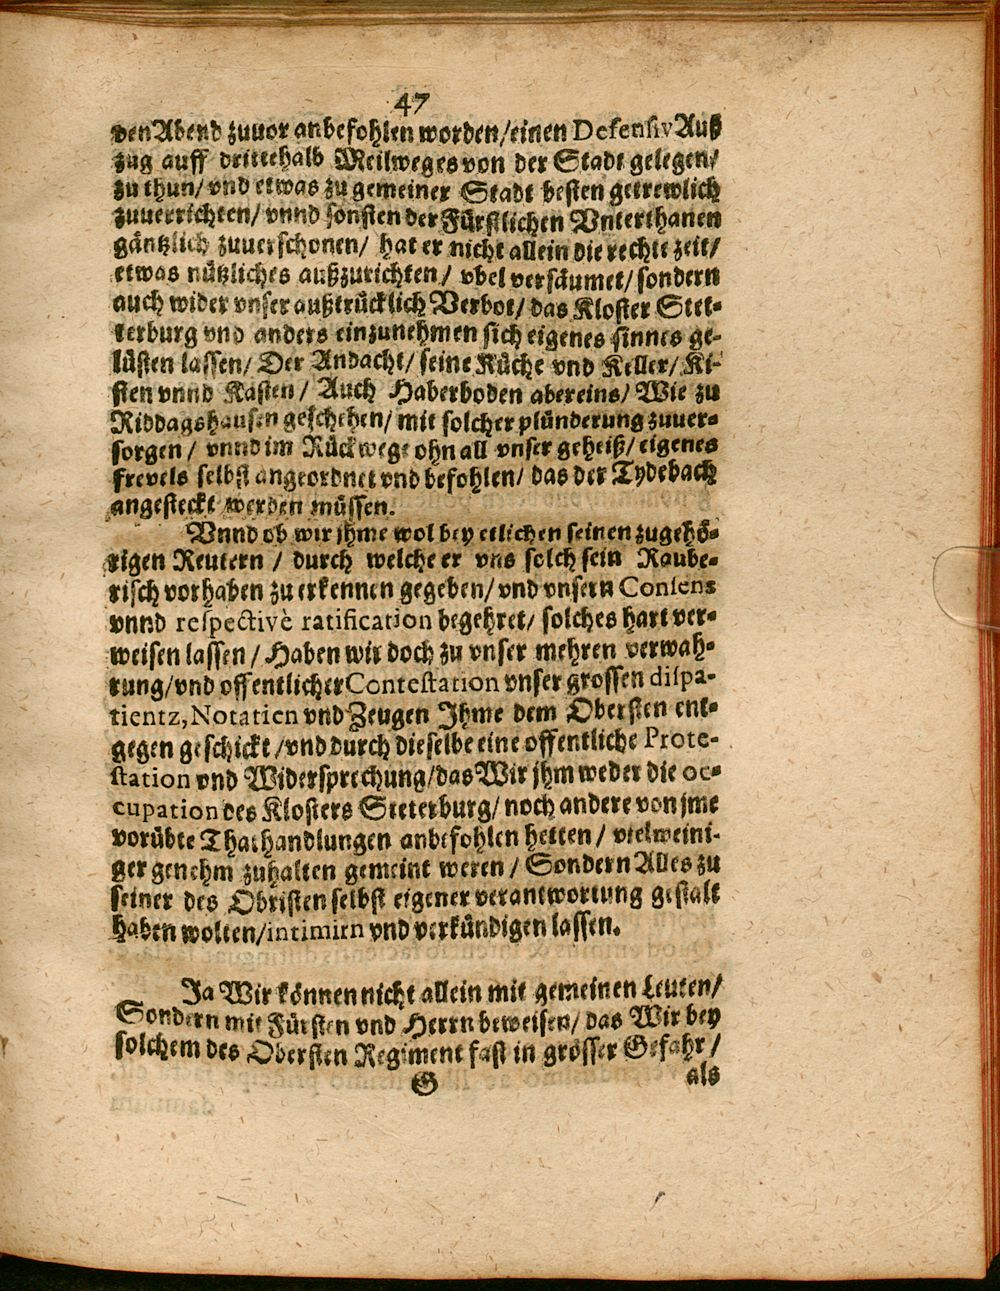 47
den Abend zuuor anbefohlen worden/einen Defensiv Auß
zug auff drittehalb Meilweges von der Stadt gelegen/
zu thun/ vnd etwas zu gemeiner Stadt besten getrewlich
zuuerrichten/ vnnd sonsten der Fürstlichen Vnterthanen
gäntzlich zuuerschonen/ hat er nicht allein die rechte zeit/
etwas nützliches außzurichten/ vbel versäumet/ sondern
auch wider vnser außtrücklich Verbot/ das Kloster Stet-
terburg vnd anders einzunehmen sich eigenes sinnes ge-
lüsten lassen/ Der Andacht/ seine Küche vnd Keller/ Ki-
sten vnnd Kasten/ Auch Haberboden abereins/ Wie zu
Riddagshausen geschehen/ mit solcher plünderung zuuer-
sorgen/ vnnd im Rückwege ohn all vnser geheiß/ eigenes
frevels selbst angeordnet vnd befohlen/ das der Tydebach
angesteckt werden müssen.
Vnnd ob wir jhme wol bey etlichen seinen zugehö-
rigen Reutern / durch welche er vns solch sein Raube-
risch vorhaben zu erkennen gegeben/ vnd vnsern Consens
vnnd respectivè ratification begehret/ solches hart ver-
weisen lassen / Haben wir doch zu vnser mehren verwah-
rung/vnd offentlicher Contestation vnser grossen dispa-
tientz, Notarien vnd Zeugen Jhme dem Obersten ent-
gegen geschickt /vnd durch dieselbe eine offentliche Prote-
station vnd Widersprechung/das Wir jhm weder die oc-
cupation des Klosters Steterburg/ noch andere von jme
vorübte Thathandlungen anbefohlen hetten / vielweini-
ger genehm zuhalten gemeint weren / Sondern Alles zu
seiner des Obristen selbst eigener verantwortung gestalt
haben wolten/intimirn vnd verkündigen lassen.
Ja Wir können nicht allein mit gemeinen Leuten/
Sondern mit Fürsten vnd Herrn beweisen/ das Wir bey
solchem des Obersten Regiment fast in grösser Gefahr /
G
als